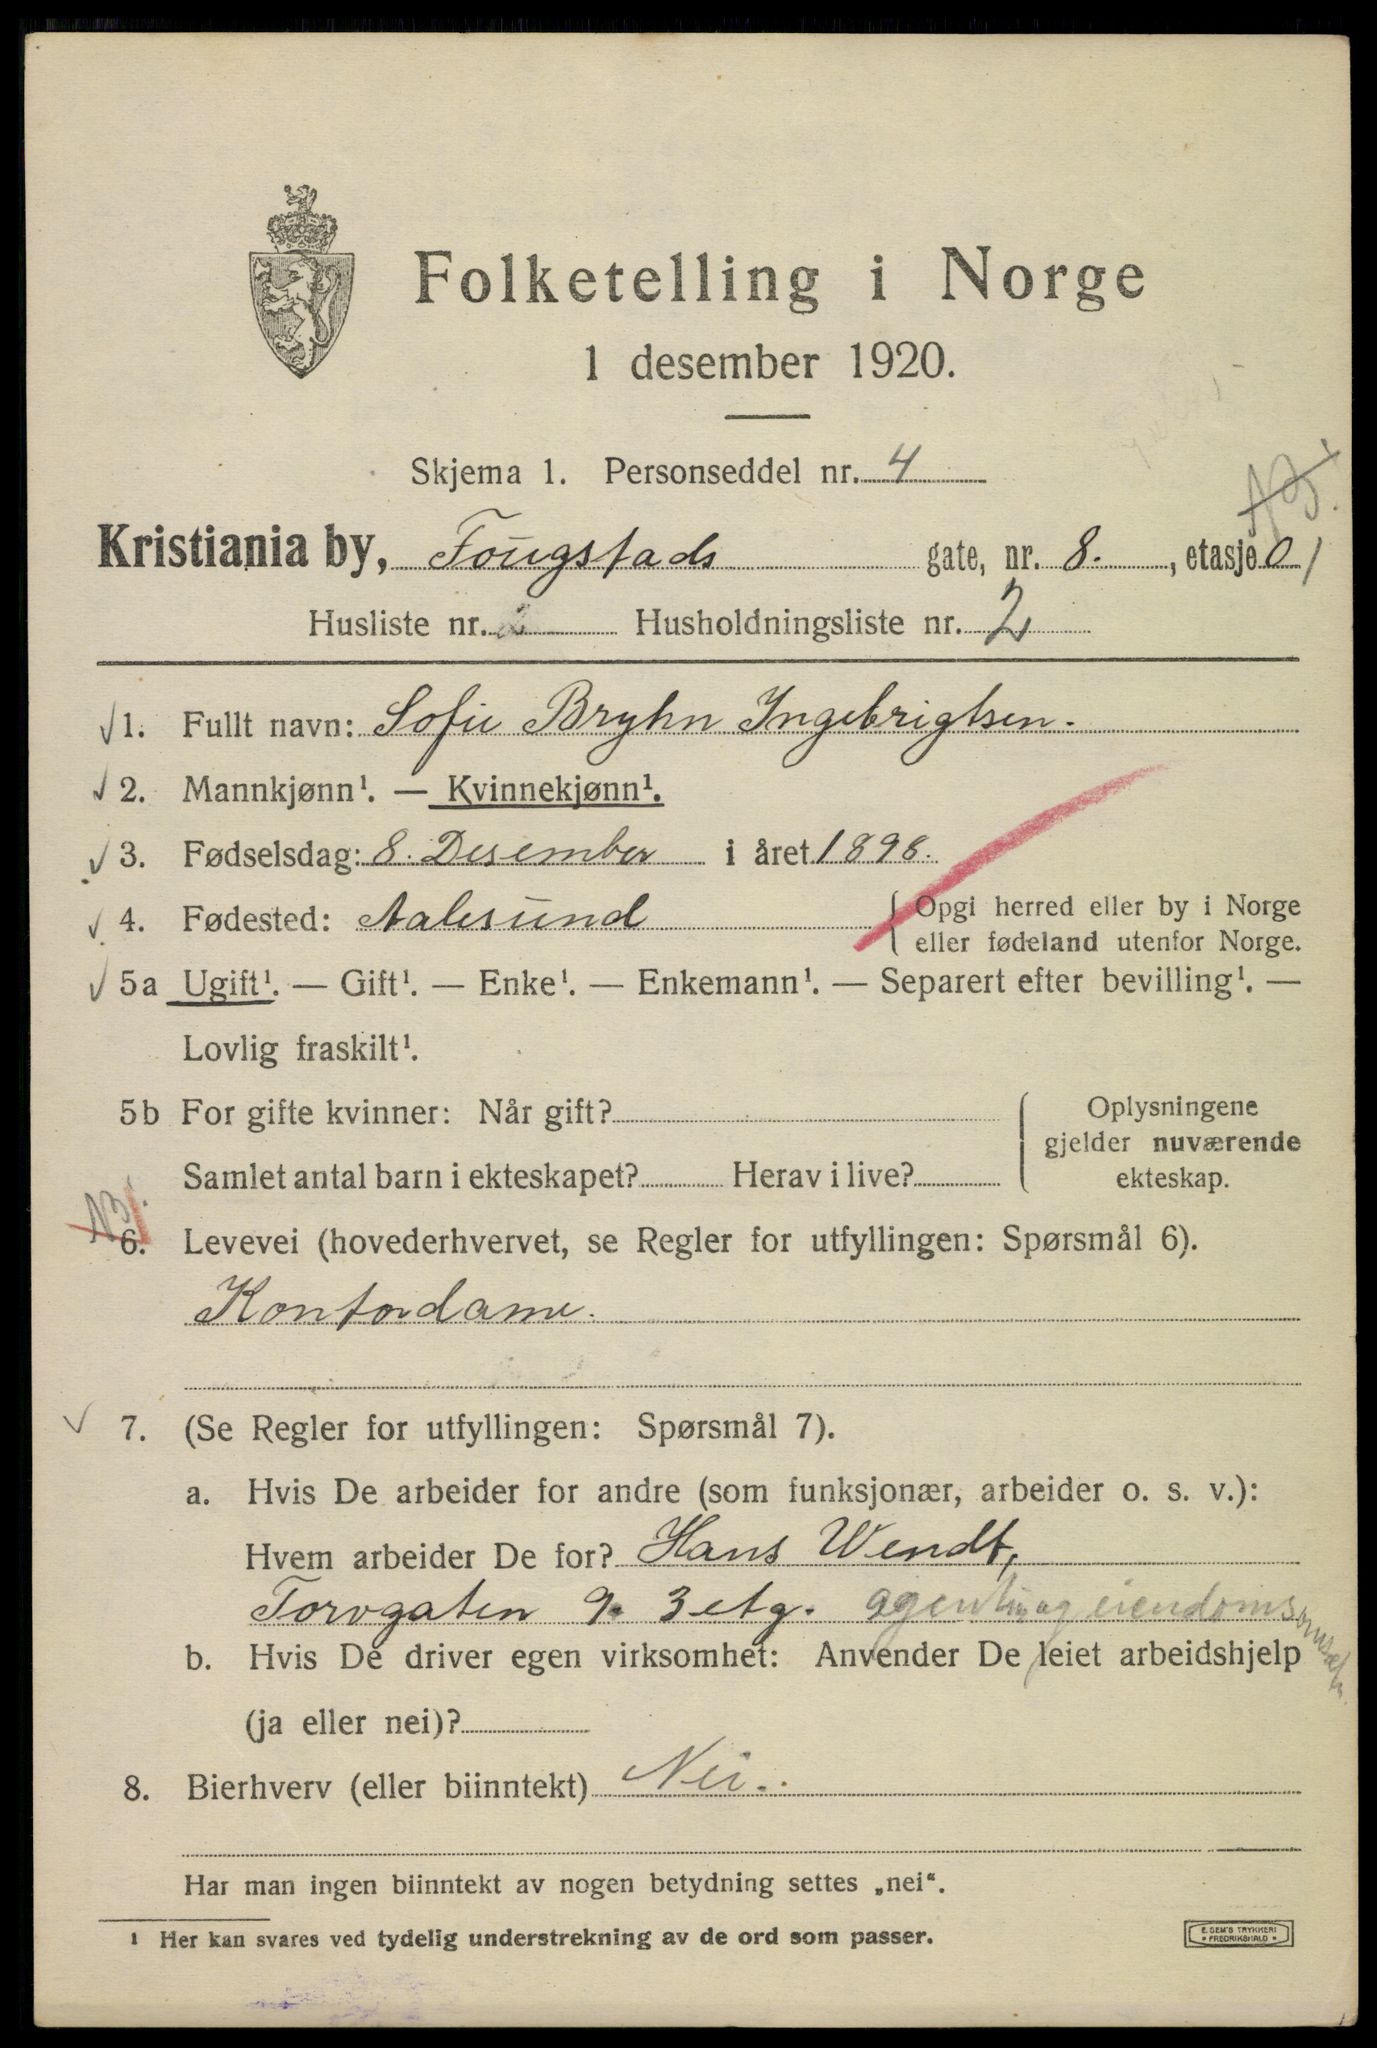 Folketelling i Norge
1 desember 1920.
Skjema 1. Personseddel nr. 4
Kristiania by, Fougstads gate, nr. 8. , etasje 01
Husliste nr. 2 Husholdningsliste nr. 2
1. Fullt navn: Sofie Bryhn Ingebrigtsen.
2. Mannkjønn¹. — Kvinnekjønn¹.
3. Fødselsdag: 8. Desember i året 1898.
4. Fødested: Aalesund { Opgi herred eller by i Norge
eller fødeland utenfor Norge.
5a Ugift¹. — Gift¹. — Enke¹. — Enkemann¹. — Separert efter bevilling¹. —
Lovlig fraskilt¹.
5b For gifte kvinner: Når gift?
Samlet antal barn i ekteskapet? Herav i live?
{ Oplysningene
gjelder nuværende
ekteskap.
6. Levevei (hovederhvervet, se Regler for utfyllingen: Spørsmål 6).
Kontordame.
7. (Se Regler for utfyllingen: Spørsmål 7).
a. Hvis De arbeider for andre (som funksjonær, arbeider o. s. v.):
Hvem arbeider De for? Hans Wendt,
Torvgaten 9. 3 etg. agentur og eiendoms
b. Hvis De driver egen virksomhet: Anvender De leiet arbeidshjelp
(ja eller nei)?
8. Bierhverv (eller biinntekt) Nei.
Har man ingen biinntekt av nogen betydning settes „nei“.
¹ Her kan svares ved tydelig understrekning av de ord som passer.
E. SEM'S TRYKKERI
FREDRIKSHALD